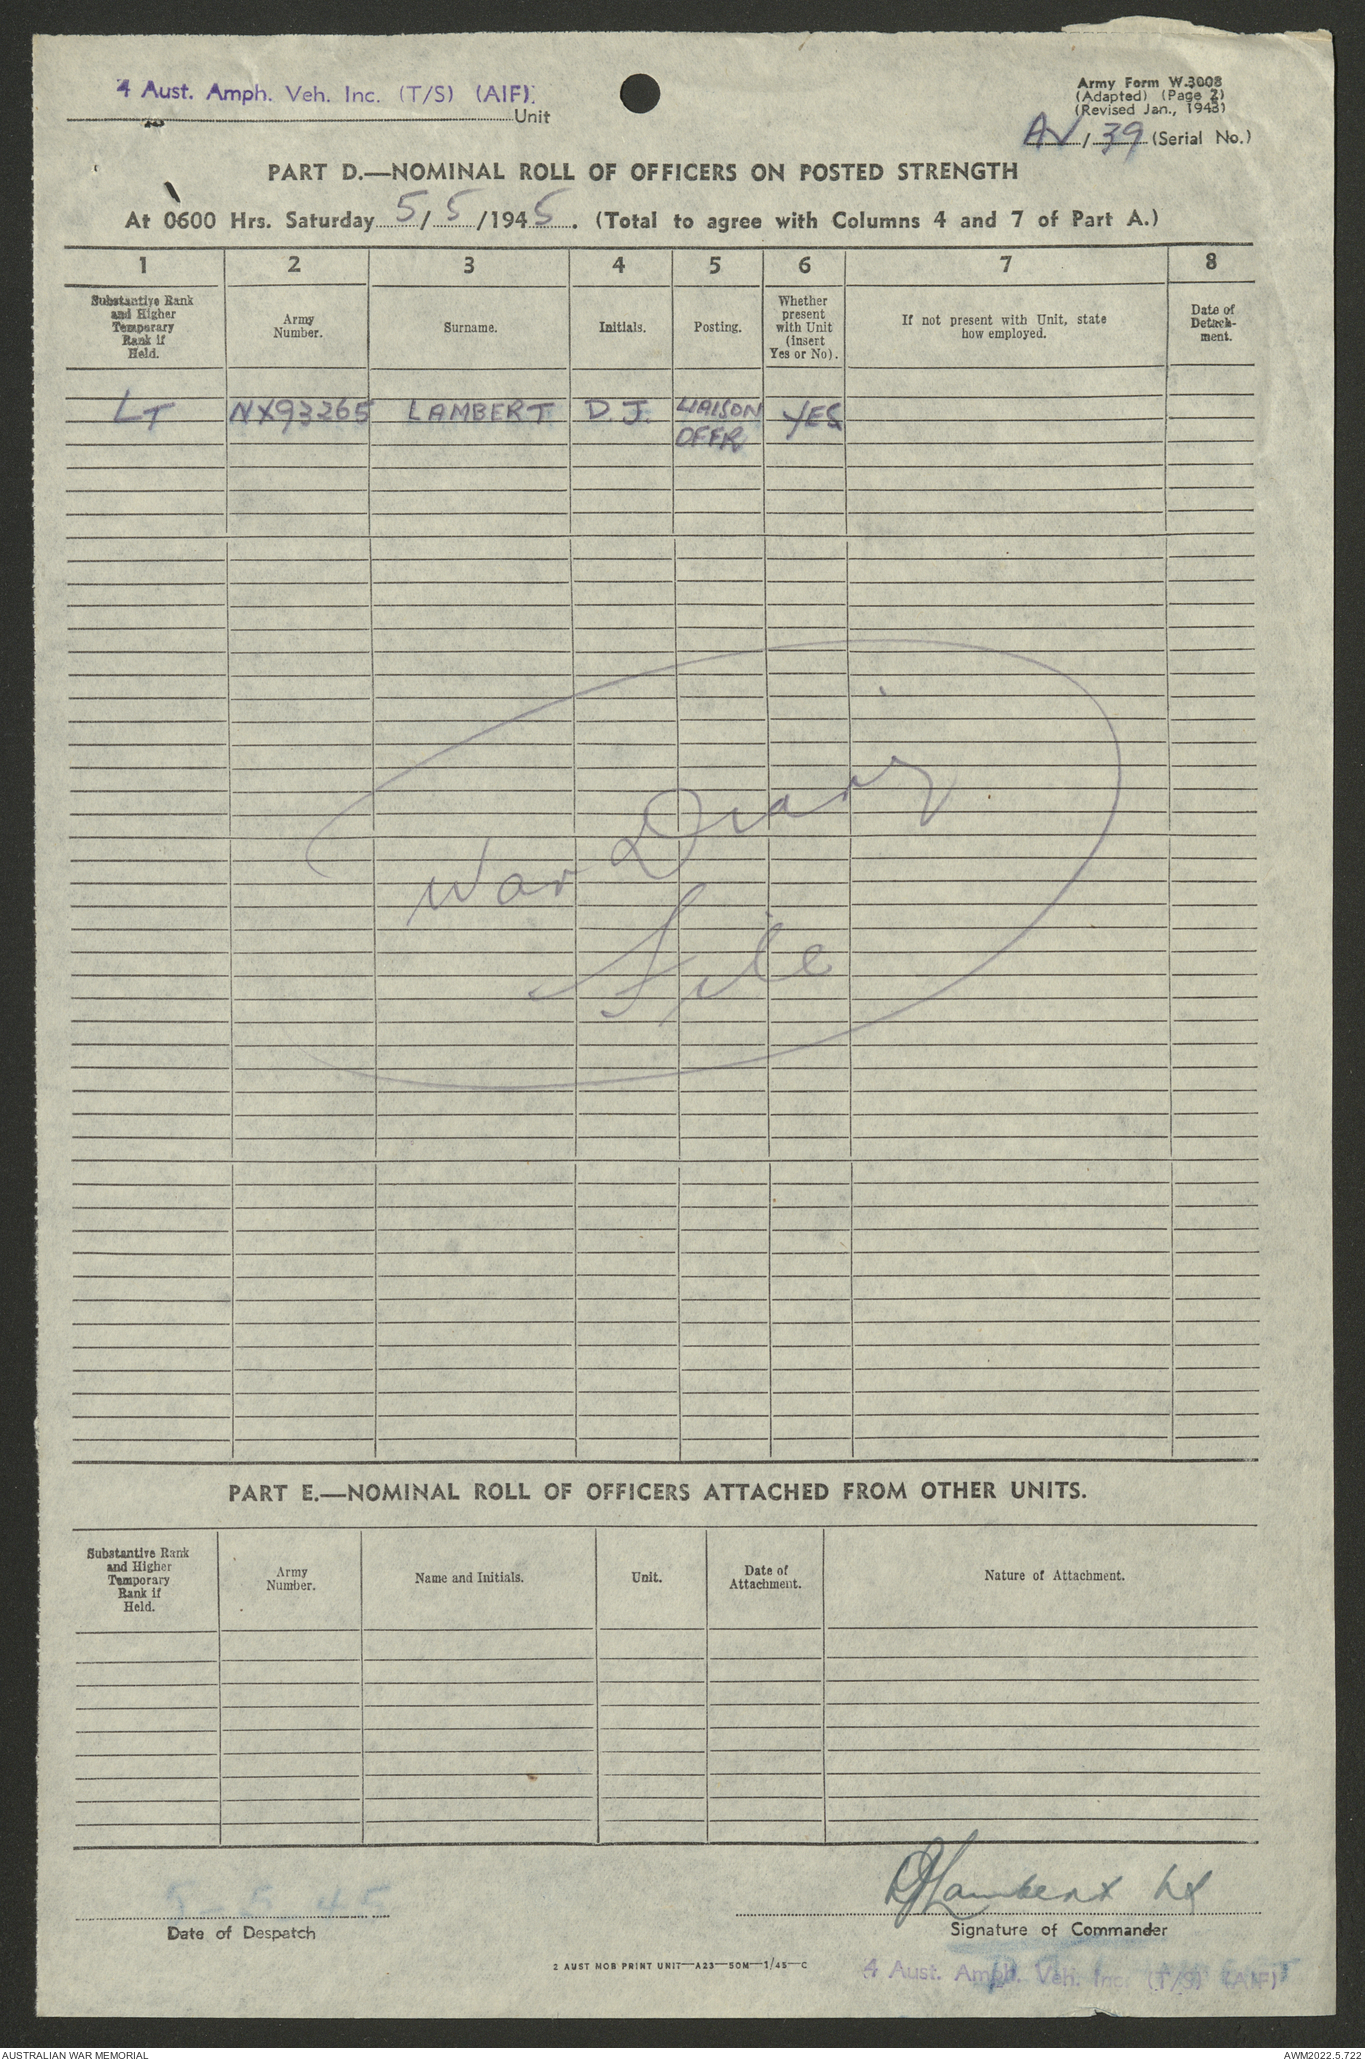 4 Aust. Amph. Veh. Inc. (T/S) (AIF).
Unit
Army Form W.3008
(Adapted) (Page 2)
(Revised Jan., 1943)
AV/39 (Serial No.)
PART D.—NOMINAL ROLL OF OFFICERS ON POSTED STRENGTH
At 0600 Hrs. Saturday 5/5/1945. (Total to agree with Columns 4 and 7 of Part A.)
1 2 3 4 5 6 7 8
Substantive Rank and Higher Temporary Rank if Held.
Army Number.
Surname.
Initials.
Posting.
Whether present with Unit (insert Yes or No).
If not present with Unit, state how employed.
Date of Detachment.
LT NX93265 LAMBERT D.J. LIAISON OFFR YES
War Diary
File
PART E.—NOMINAL ROLL OF OFFICERS ATTACHED FROM OTHER UNITS.
Substantive Rank and Higher Temporary Rank if Held.
Army Number.
Name and Initials.
Unit.
Date of Attachment.
Nature of Attachment.
5-5-45
Date of Despatch
DJLambert Lt
Signature of Commander
2 AUST MOB PRINT UNIT—A23—50M—1/45—C
4 Aust. Amph. Veh. Inc. (T/S) (AIF)
AUSTRALIAN WAR MEMORIAL
AWM2022.5.722